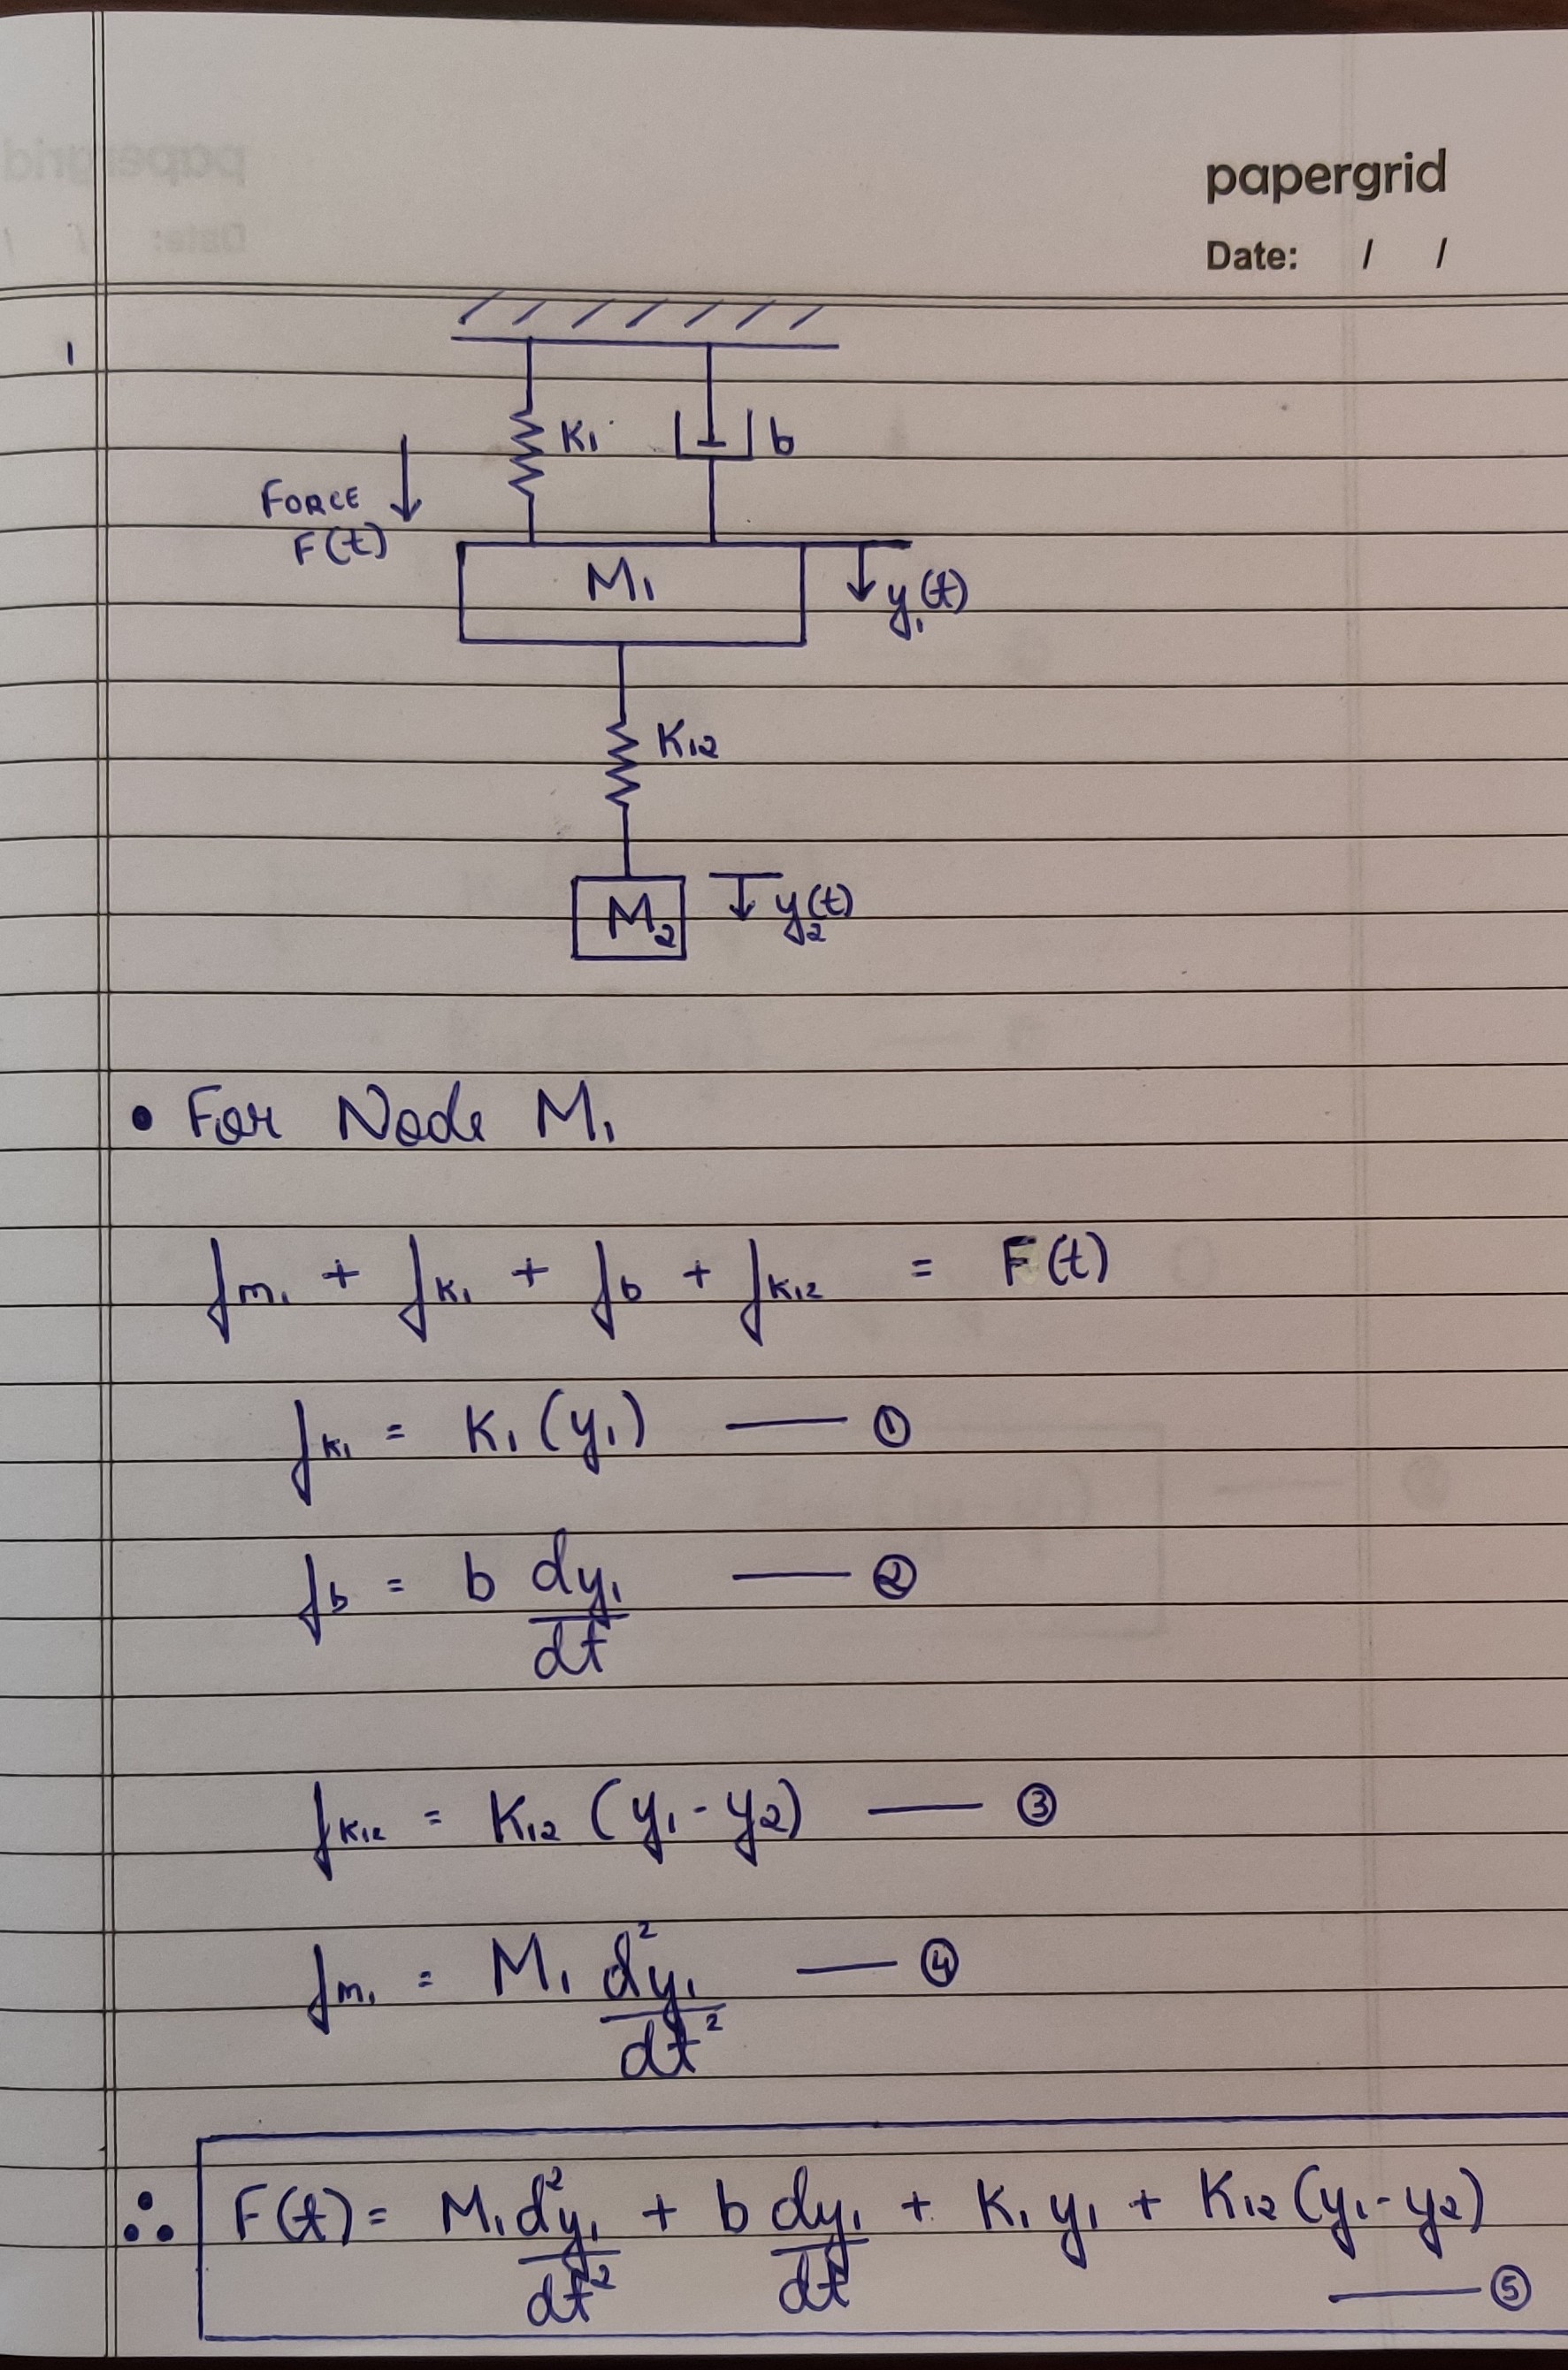 papergrid
Date: / /
1
K₁ b
FORCE
F(t)
M₁ y₁(t)
K₁₂
M₂ y₂(t)
• For Node M₁
fm₁ + fK₁ + fb + fK₁₂ = F(t)
fK₁ = K₁(y₁) —— ①
fb = b dy₁/dt —— ②
fK₁₂ = K₁₂(y₁-y₂) —— ③
fm₁ = M₁ d²y₁/dt² —— ④
∴ F(t) = M₁ d²y₁/dt² + b dy₁/dt + K₁y₁ + K₁₂(y₁-y₂)
—— ⑤